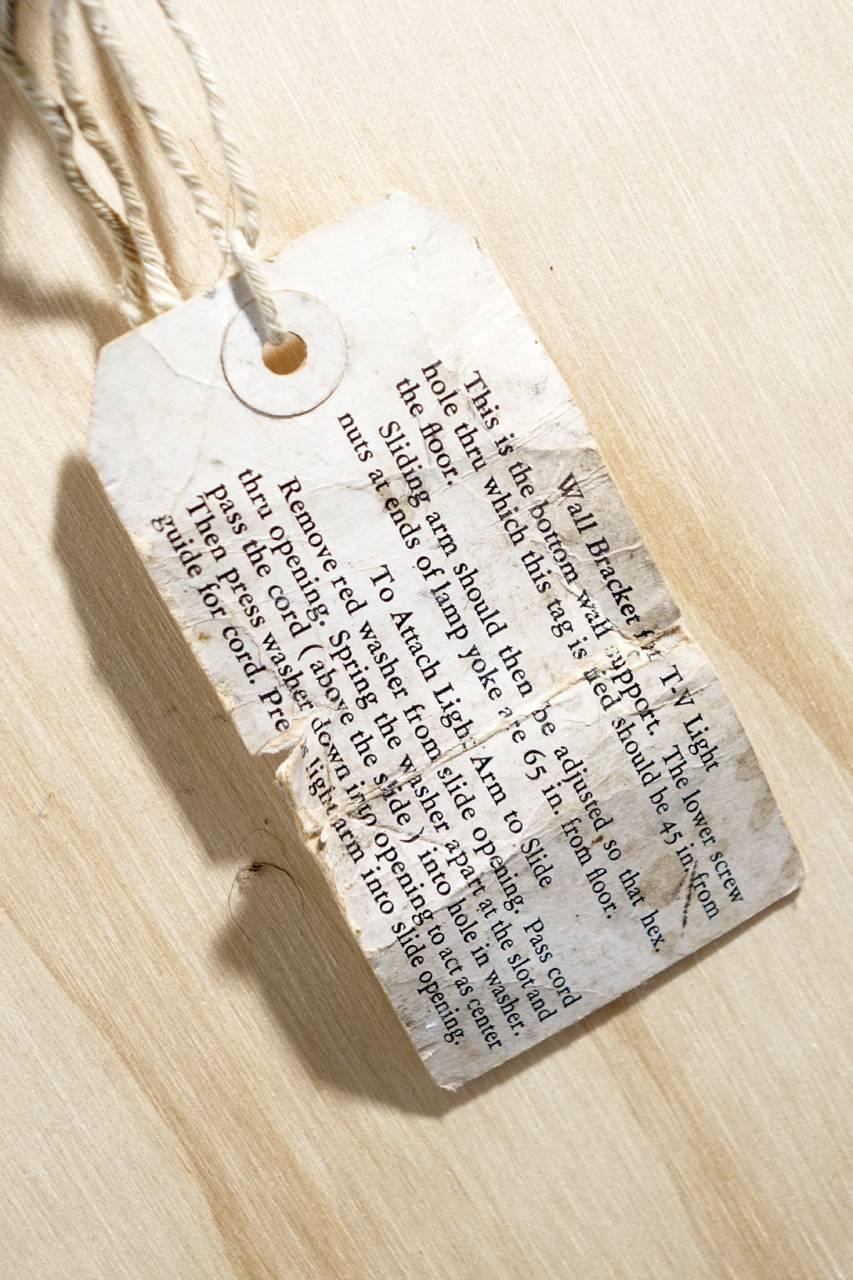 Wall Bracket for T-V Light
This is the bottom wall support. The lower screw
hole thru which this tag is tied should be 45 in. from
the floor.
Sliding arm should then be adjusted so that hex.
nuts at ends of lamp yoke are 65 in. from floor.
To Attach Light Arm to Slide
Remove red washer from slide opening. Pass cord
thru opening. Spring the washer apart at the slot and
pass the cord ( above the slide ) into hole in washer.
Then press washer down into opening to act as center
guide for cord. Press light arm into slide opening.